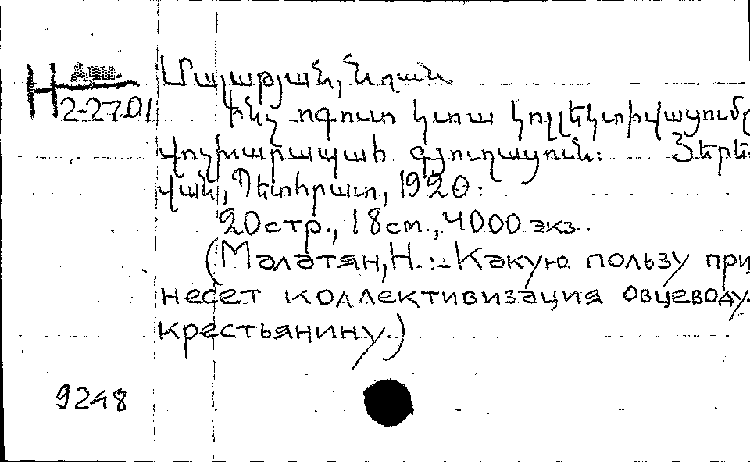 Арм.
Н
2-2701
Մալաթյան, Նշան
Ինչ օգուտ կտա կոլլեկտիվացումը
վոչխարապահ գյուղացուն: Յերե-
վան, Պետհրատ, 1920.
20 стр., 18 см., 4000 экз.
(Малатян, Н. :- Какую пользу при
несет коллективизация овцеводу.
крестьянину.)
9248